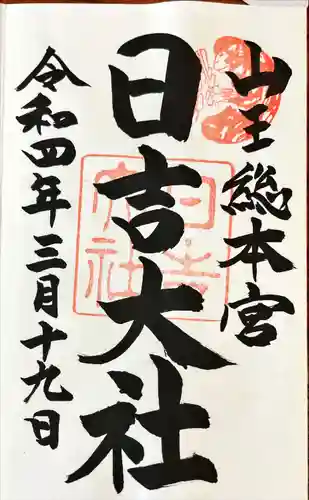 山王総本宮
日吉大社
令和四年三月十九日
日吉
大社